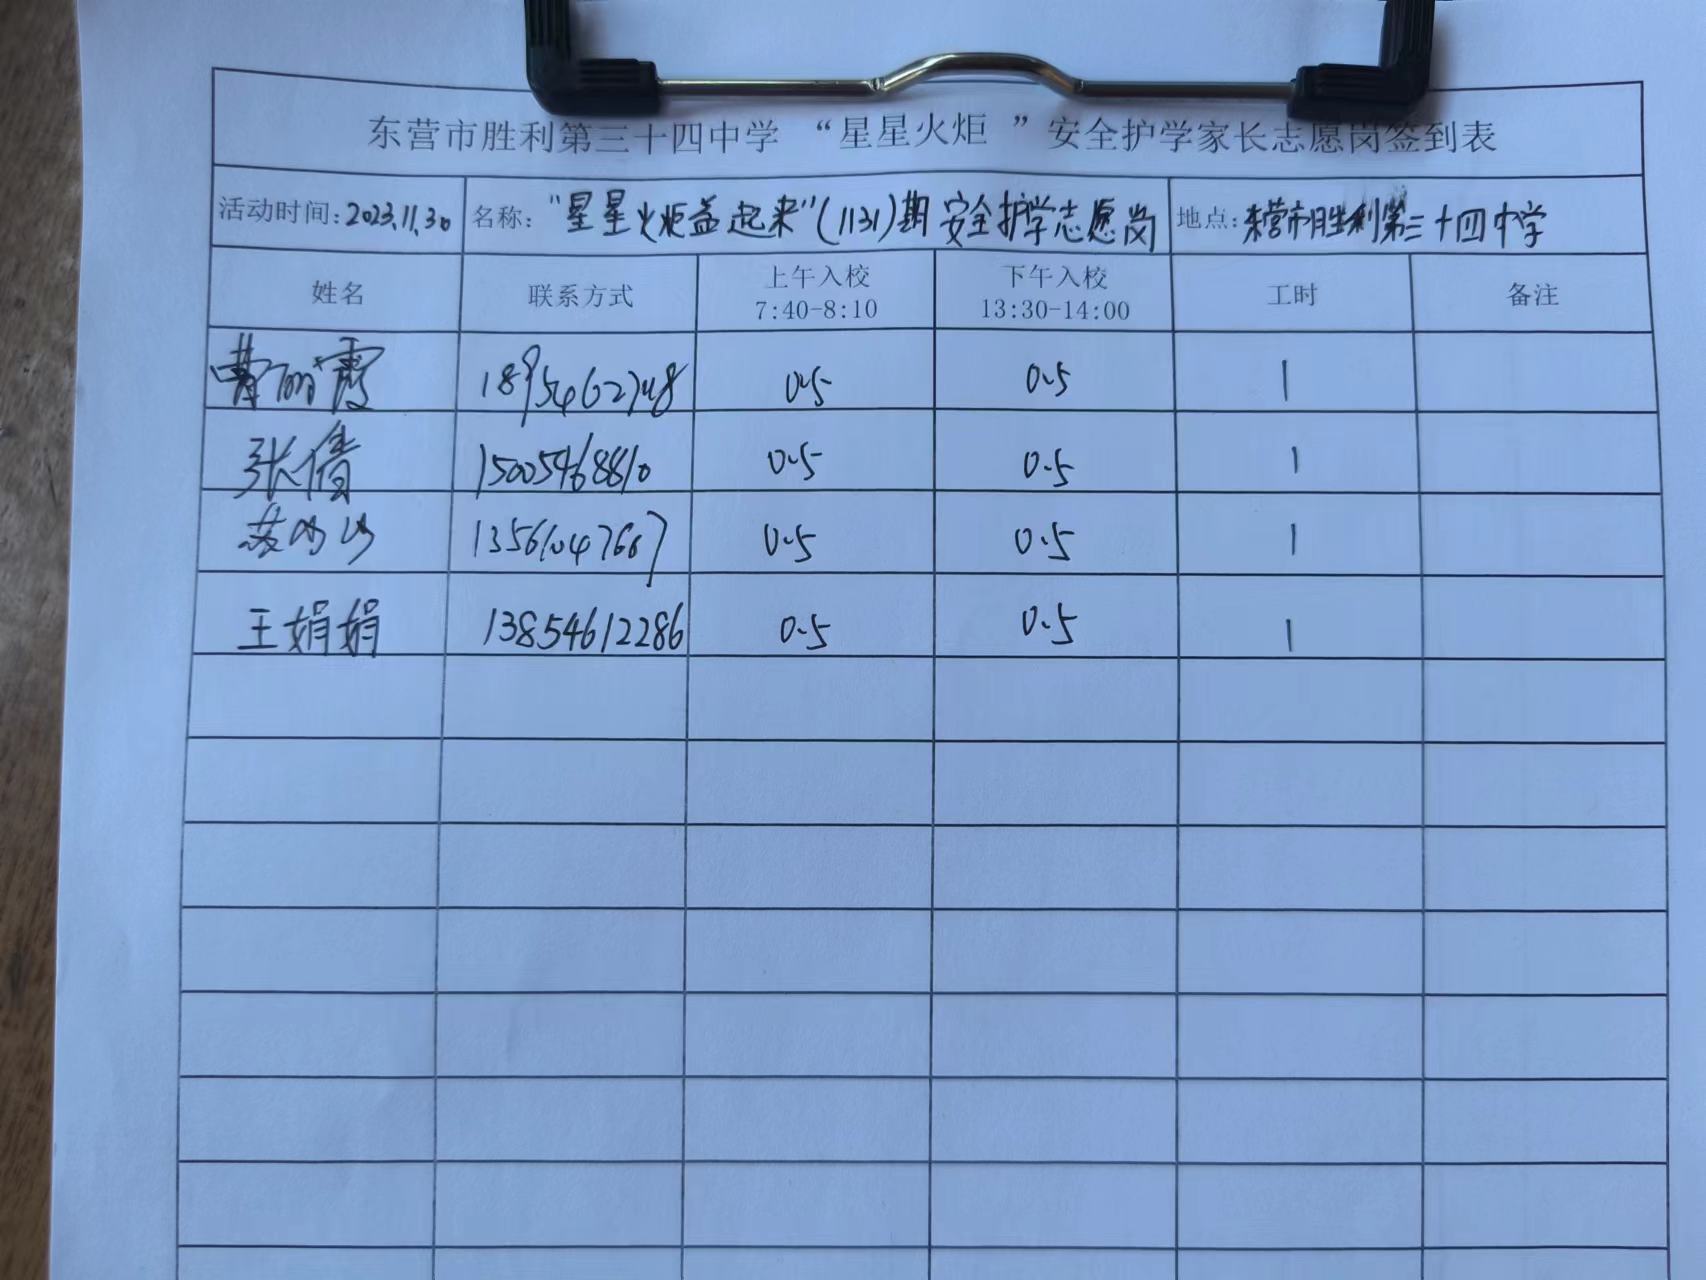 东营市胜利第三十四中学 “星星火炬 ”安全护学家长志愿岗签到表
活动时间:2023.11.30 名称: "星星火炬益起来"(1131)期安全护学志愿岗 地点: 东营市胜利第三十四中学
姓名 联系方式 上午入校 下午入校 工时 备注
7:40-8:10 13:30-14:00
曹丽霞 0.5 0.5 1
张倩 15005468810 0.5 0.5 1
0.5 0.5 1
王娟娟 13854612286 0.5 0.5 1